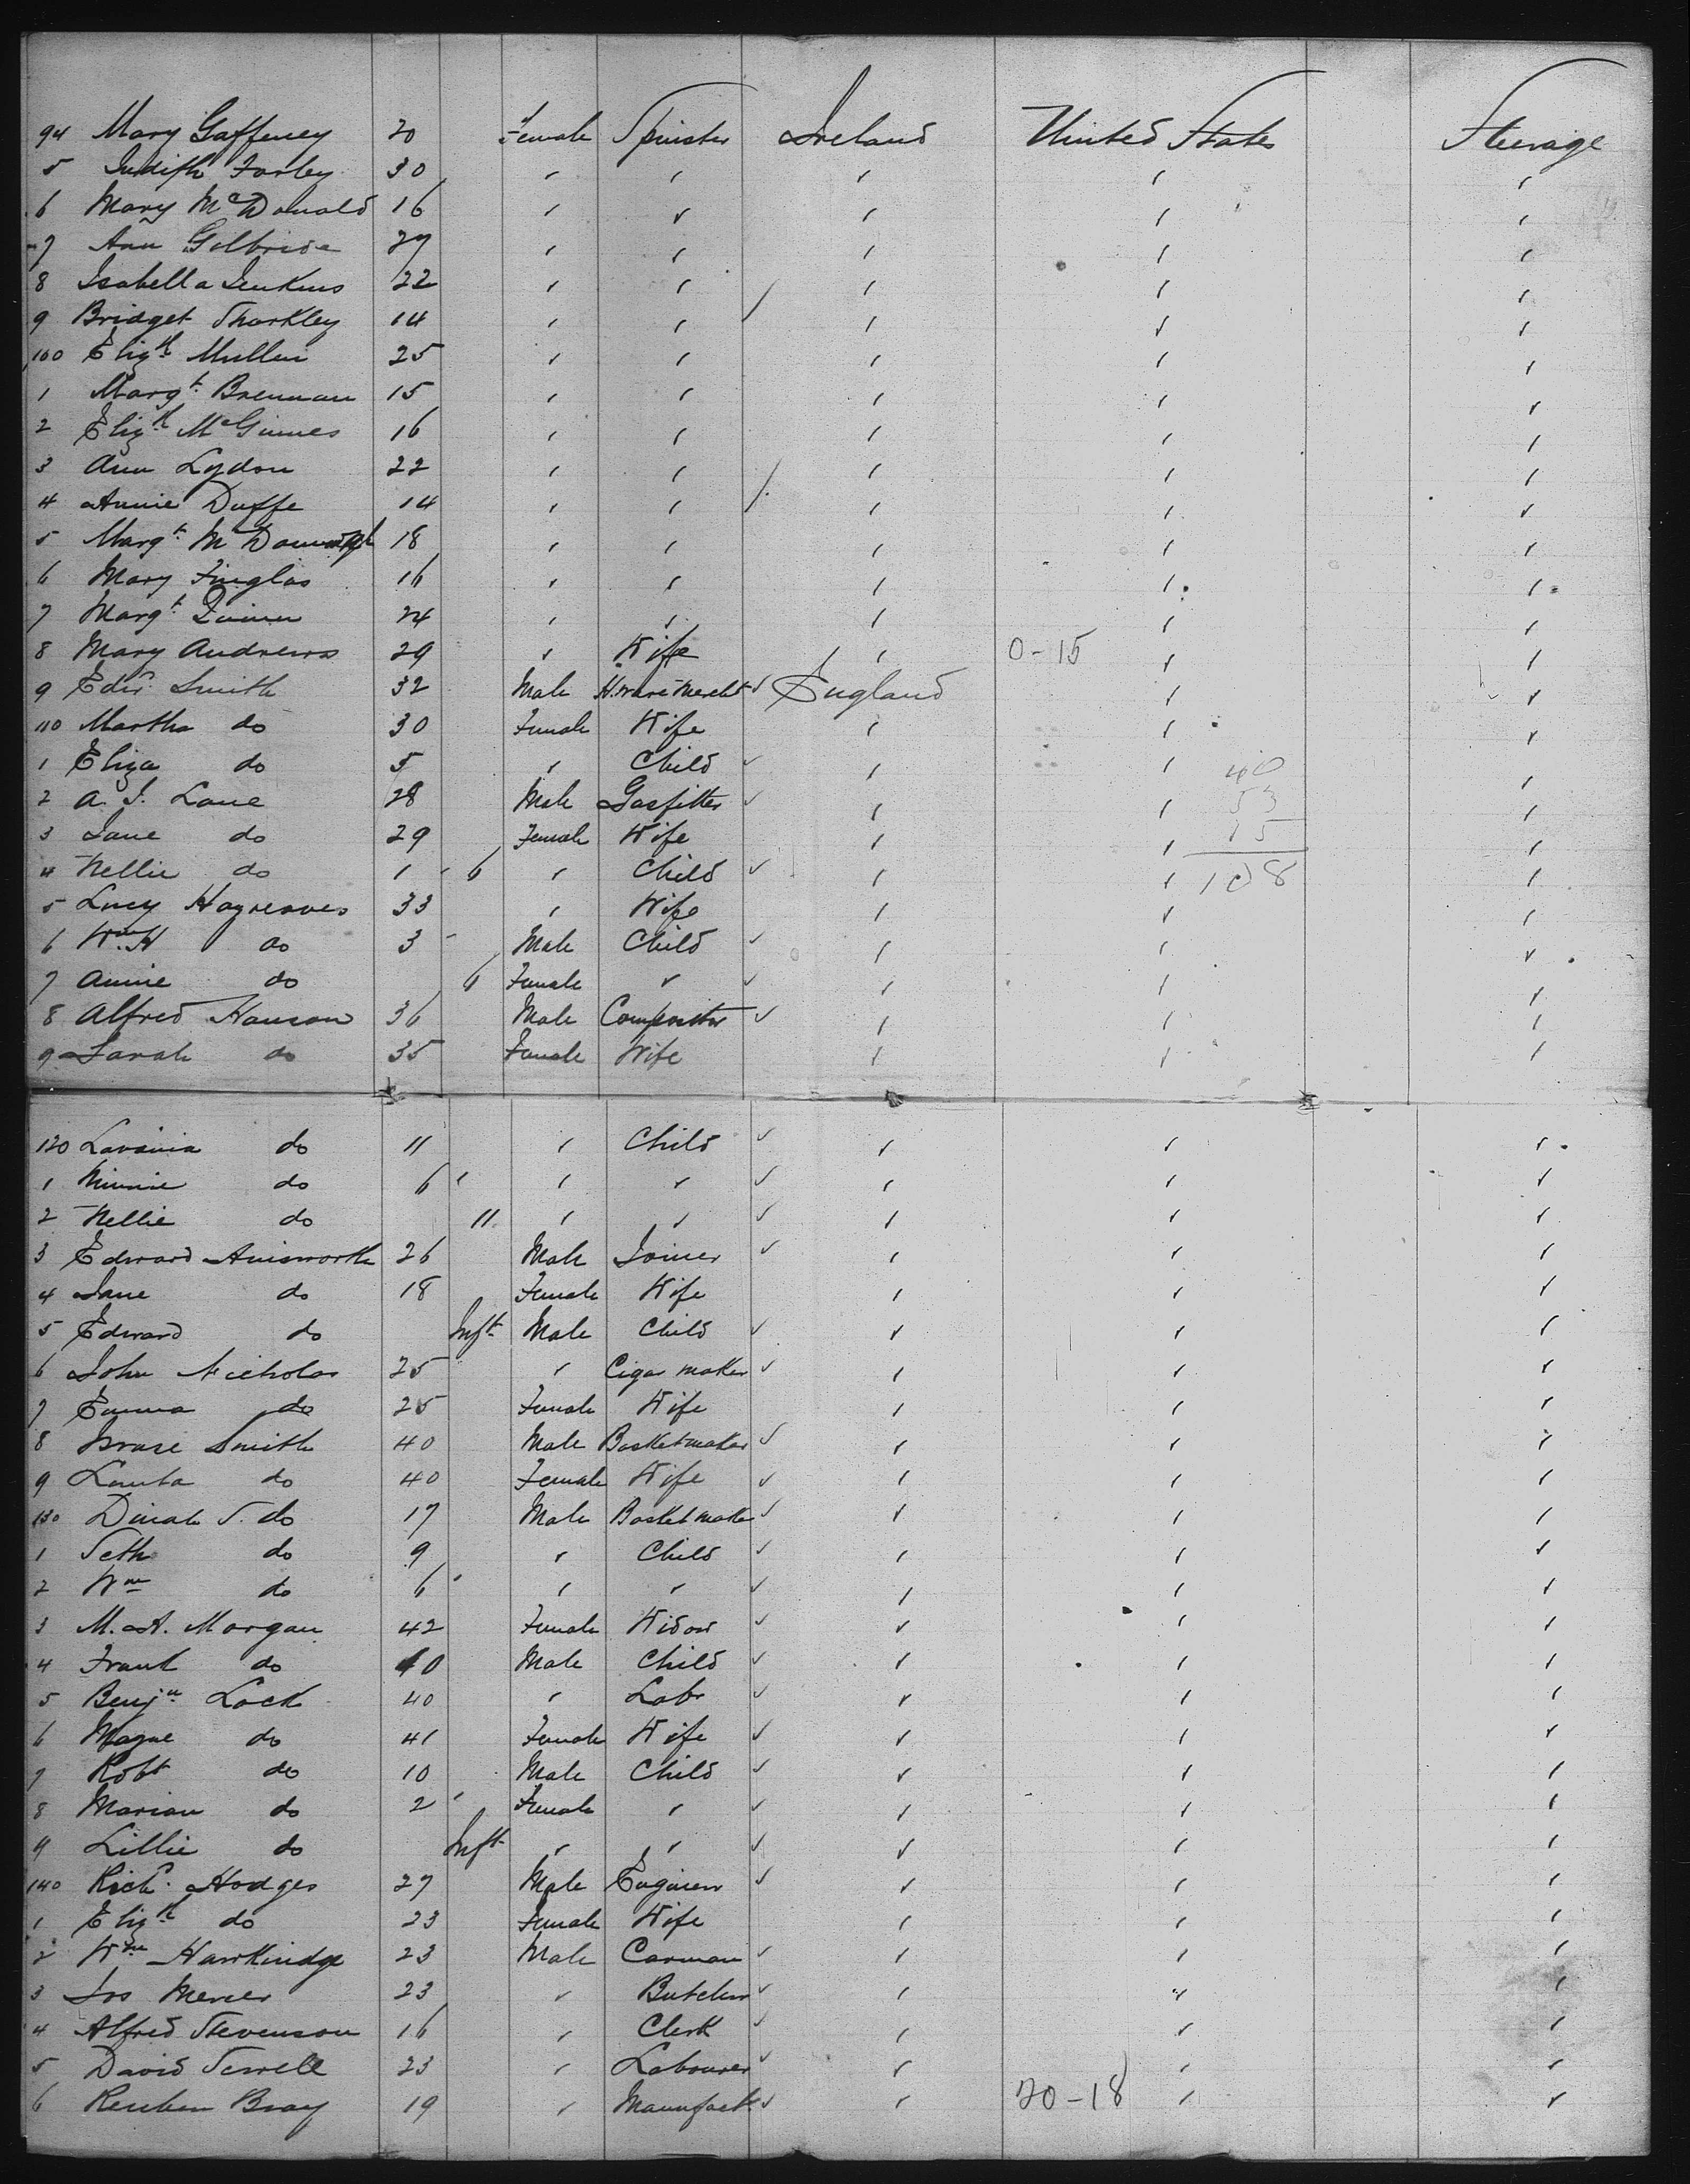 94 Mary Gaffeney 20 Female Spinster Ireland United States Steerage
5 Judith Farley 30 " " " " "
6 Mary McDonald 16 " " " " "
7 Ann Gilbride 27 " " " " "
8 Isabella Jenkins 22 " " " " "
9 Bridget Sharkley 14 " " " " "
100 Elizth Mullen 25 " " " " "
1 Margt Brennan 15 " " " " "
2 Elizth McGinnes 16 " " " " "
3 Ann Lydon 22 " " " " "
4 Annie Duffe 14 " " " " "
5 Margt McDonough 18 " " " " "
6 Mary Finglas 16 " " " " "
7 Margt 24 " " " " "
8 Mary Andrews 29 " Wife " 0-15 " "
9 Edwd Smith 32 Male H.ware Mercht England " "
110 Martha do 30 Female Wife " " "
1 Eliza do 5 " Child " " " 40
2 A. J. Lane 28 Male Gasfitter " " 53 "
3 Jane do 29 Female Wife " " 15 "
4 Nellie do 1 - 6 " Child " " 108 "
5 Lucy Hagreaves 33 " Wife " " "
6 Wm H do 3 - Male Child " " "
7 Annie do 6 Female " " " "
8 Alfred Hanson 36 Male Compositor " " "
9 Sarah do 35 Female Wife " " "
120 Lavinia do 11 " Child " " "
1 Minnie do 6 " " " " "
2 Nellie do 11 " " " " "
3 Edward Ainsworth 26 Male Joiner " " "
4 Jane do 18 Female Wife " " "
5 Edward do Inft Male Child " " "
6 John Nicholas 25 " Cigar maker " " "
7 Emma do 25 Female Wife " " "
8 Smith 40 Male Basketmaker " " "
9 do 40 Female Wife " " "
130 Dinah S. do 17 Male Basketmaker " " "
1 Seth do 9 " Child " " "
2 Wm do 6 " " " " "
3 M. A. Morgan 42 Female Widow " " "
4 Frank do 10 Male Child " " "
5 Benjn Lock 40 " Labr " " "
6 do 41 Female Wife " " "
7 Robt do 10 Male Child " " "
8 Marian do 2 Female " " " "
9 Lillie do Inft " " " " "
140 Richd Hodges 27 Male Engineer " " "
1 Elizth do 23 Female Wife " " "
2 Wm Hawkindge 23 Male Carman " " "
3 Jos Mercer 23 " Butcher " " "
4 Alfred Stevenson 16 " Clerk " " "
5 David Sewell 23 " Labourer " " "
6 Reuben Bray 19 " Manufact. " 20-18 " "